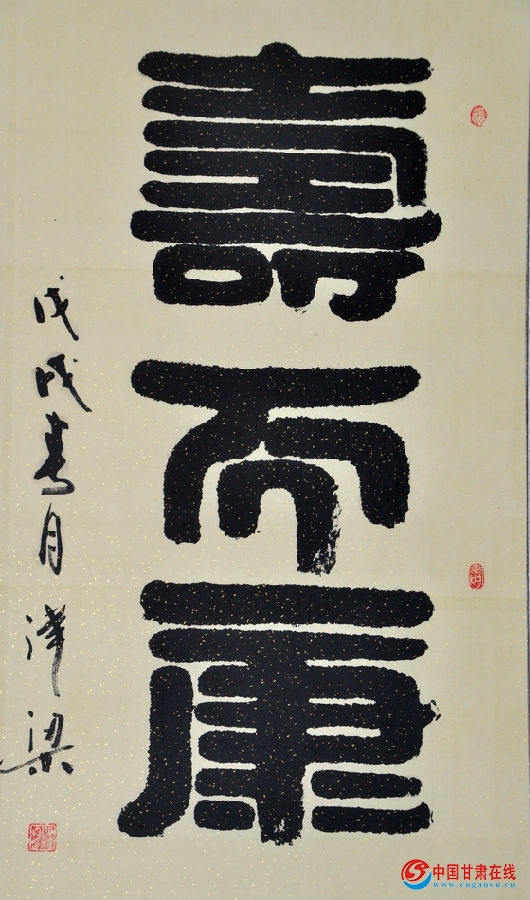 壽而康
戊戌春月泽梁
中国甘肃在线
www.cngansu.cn